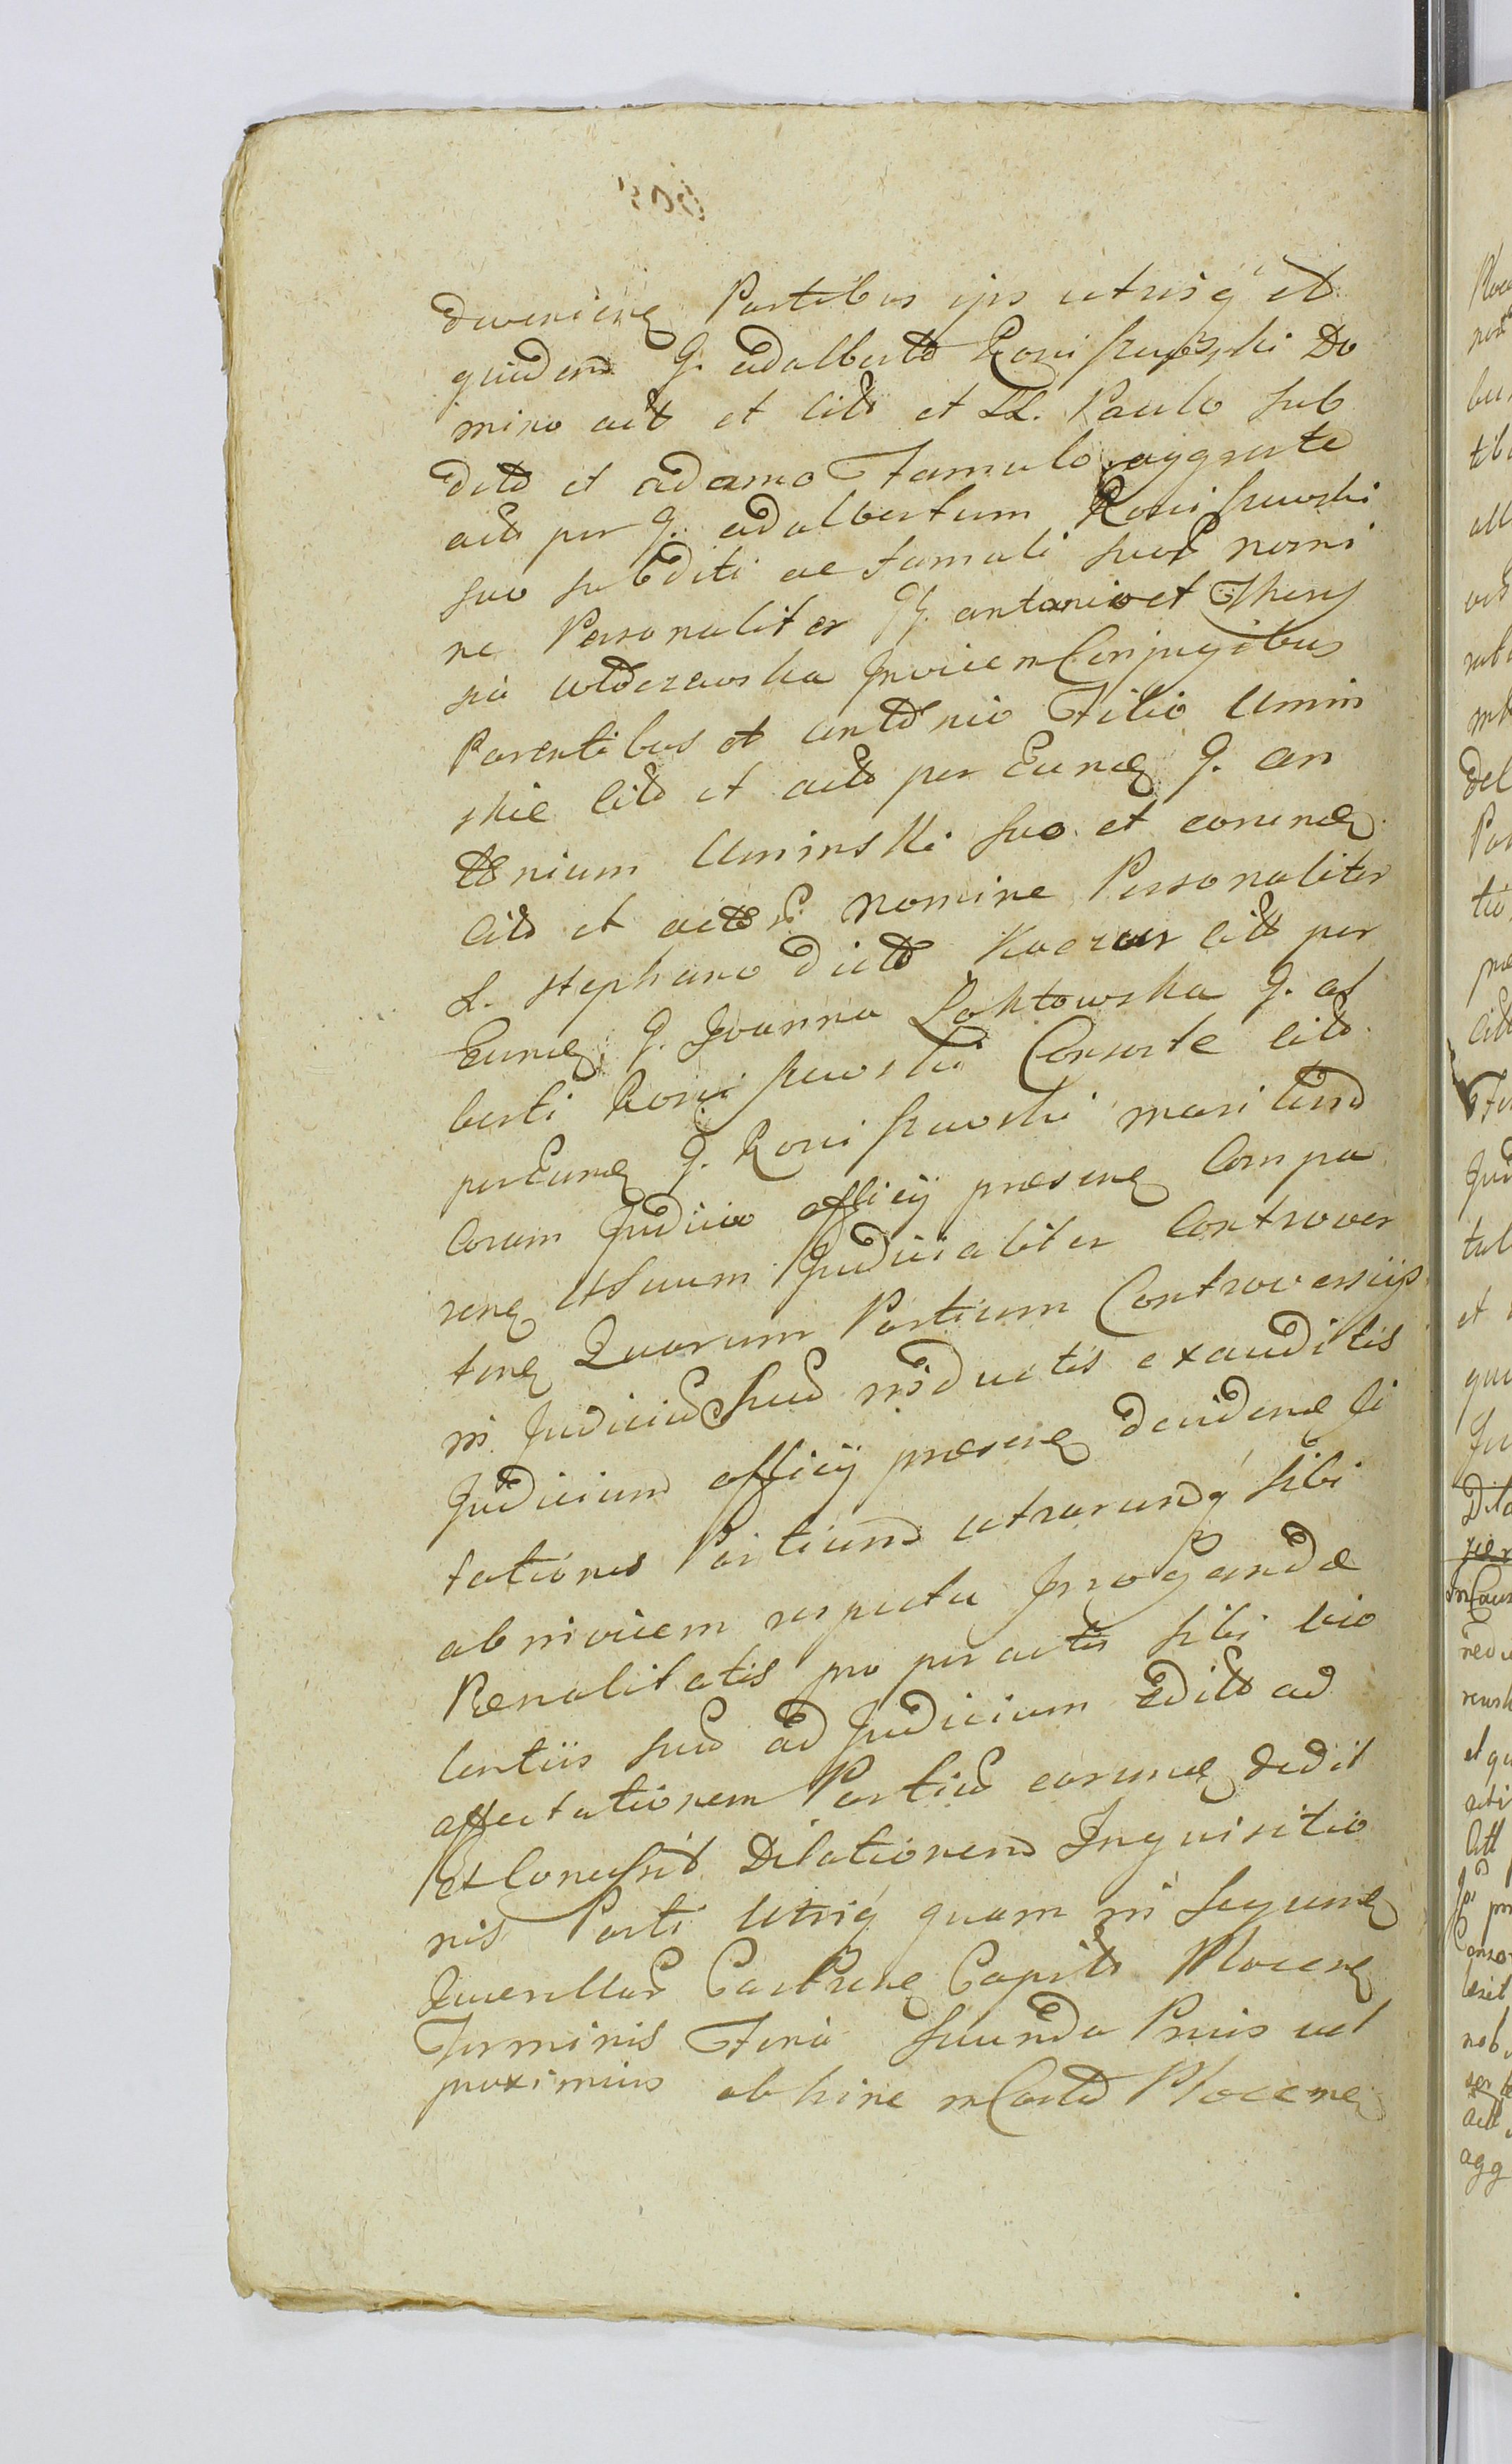 devenienę Partibus ips utrisq́ et
quidem G. adalberto Roniszewski Do
mino act et cito et LL. Paulo Sub
dito et adamo Famulo aggrate
acto per G. adalbertum Roniszewski
suo subditi ac famuli suor nomi
ne Personaliter GG. antonio et There
sia Invicem Conjugibus
Parentibus et antonio Filio Umin
skie cito et acto per Eundę G. an
tonium Uminski suo et eorundę
cito et actor nomine Personaliter
L. Stephano dicto Kaczor cito per
Eundę G. Joanna Łoktowska G. al
berti Roniszewski Consorte cito
per Eundę G. Roniszewski maritum
Coram Judicio officij præsenę Compa
renę et suum Judicialiter Controver
tenę Quarum Partium Controversijs
in Judicium suum inductis exauditis
Judicium officij præsenę decidenę Ci
tationes Partium utrarumq́ sibi
ab invicem respectu Irrogandæ
Pœnalitatis pro peractis sibi vio
lentiis suo ad Judicium Edito ad
affectationem Partium earundę dedit
et Concessit Dilationem Inquisitio
nis Parti Utriq́ quam in sequenę
Querellar Castrenę Capitlo Plocenę
Terminis Feria secunda Prius vel
proximius abhinc in Castro Plocenę